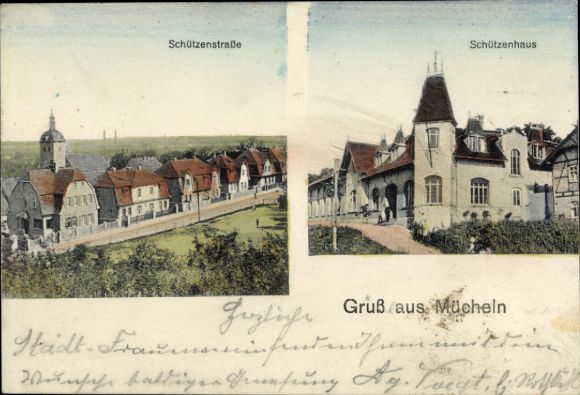 Schützenstraße
Schützenhaus
Gruß aus Mücheln
Herzliche
Städt. Frauenverein senden Ihnen mit dem
Wunsche baldiger Genesung Ag. Voigt,